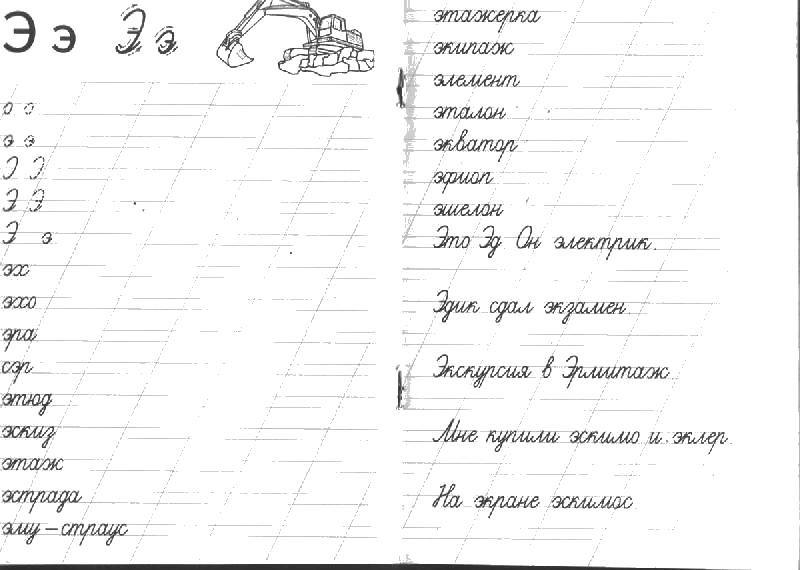 Э э Э э
э э
э э
Э Э
Э Э
Э э
эх
эхо
эра
сэр
этюд
эскиз
этаж
эстрада
эму – страус
этажерка
экипаж
элемент
эталон
экватор
эфиоп
эшелон
Это Эд Он электрик.
Эдик сдал экзамен.
Экскурсия в Эрмитаж
Мне купили эскимо и эклер.
На экране эскимос